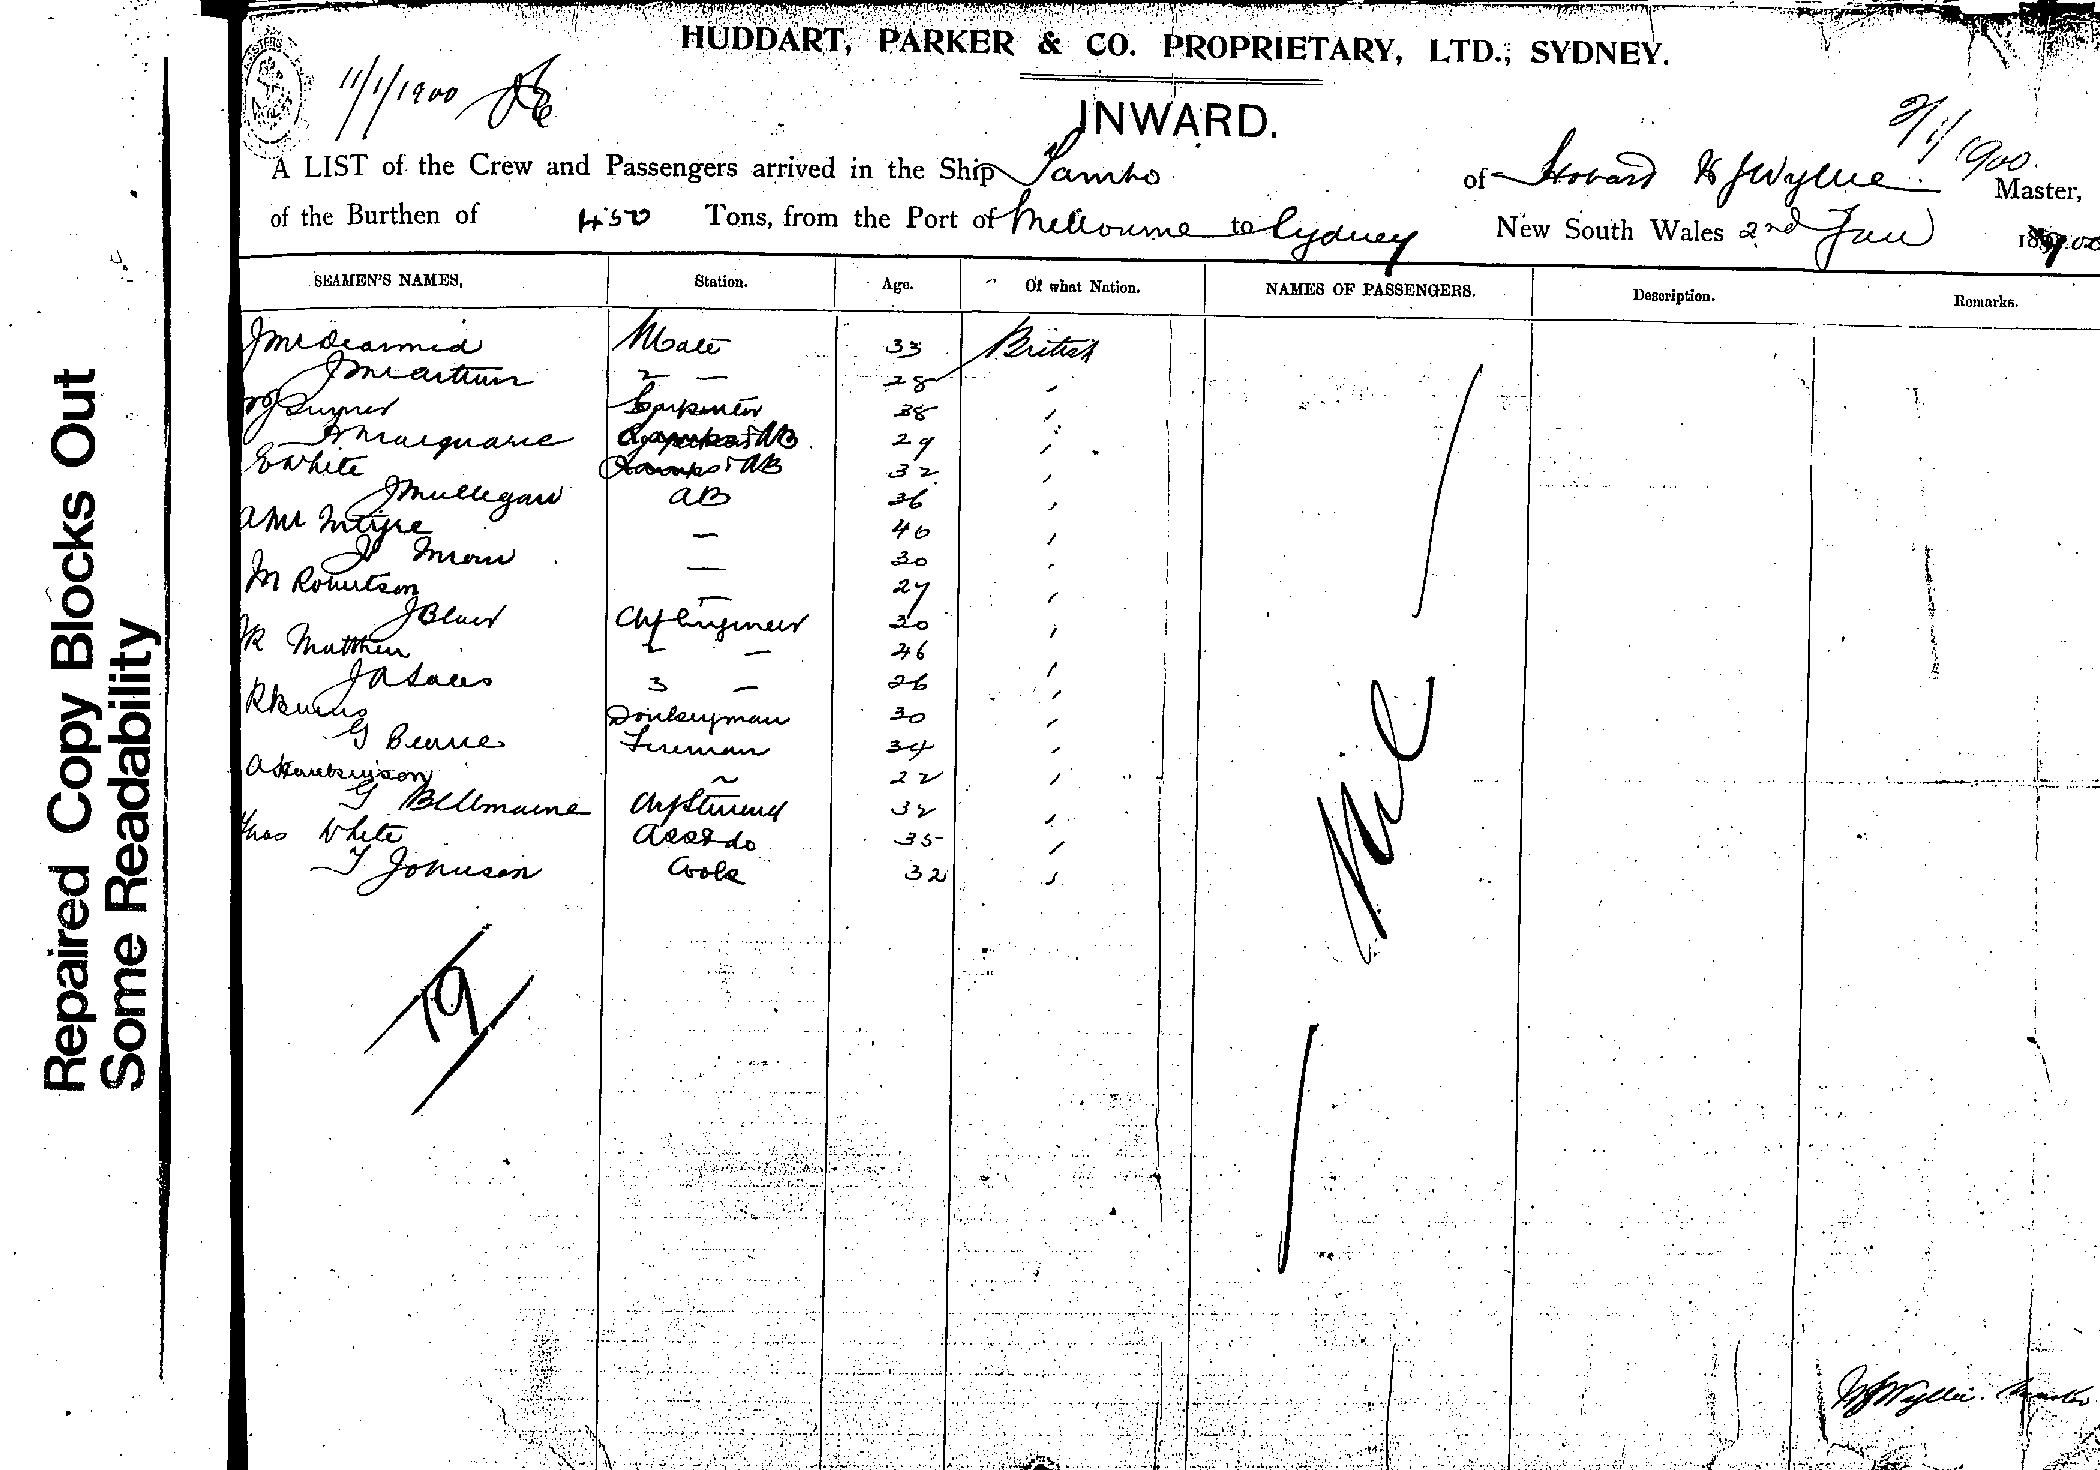 HUDDART, PARKER & CO. PROPRIETARY, LTD., SYDNEY.
11/1/1900
INWARD.
2/1/1900
A LIST of the Crew and Passengers arrived in the Ship Tambo of Hobart W J Wyllie Master,
of the Burthen of 450 Tons, from the Port of Melbourne to Sydney New South Wales 2nd Jan 1900
SEAMEN'S NAMES, Station. Age. Of what Nation. NAMES OF PASSENGERS. Description. Remarks.
J McDearmid Mate 33 British
J McArthur 2 — 28 "
Carpenter 38 "
Macquarie AB 29 "
E White AB 32 "
J Mullegan AB 36 "
A Mc Intyre — 40 "
— 30 "
M Robertson — 27 "
J Blair Chf Engineer 30 "
R Matthew 2 — 46 "
J A 3 — 26 "
R Burns Donkeyman 30 "
G Fireman 34 "
A ~ 22 "
G Bellmaine Chf Steward 32 "
Thos White Asst do 35 "
T Johnson Cook 32 "
Nil
19
W J Wyllie. Master
Repaired Copy Blocks Out
Some Readability